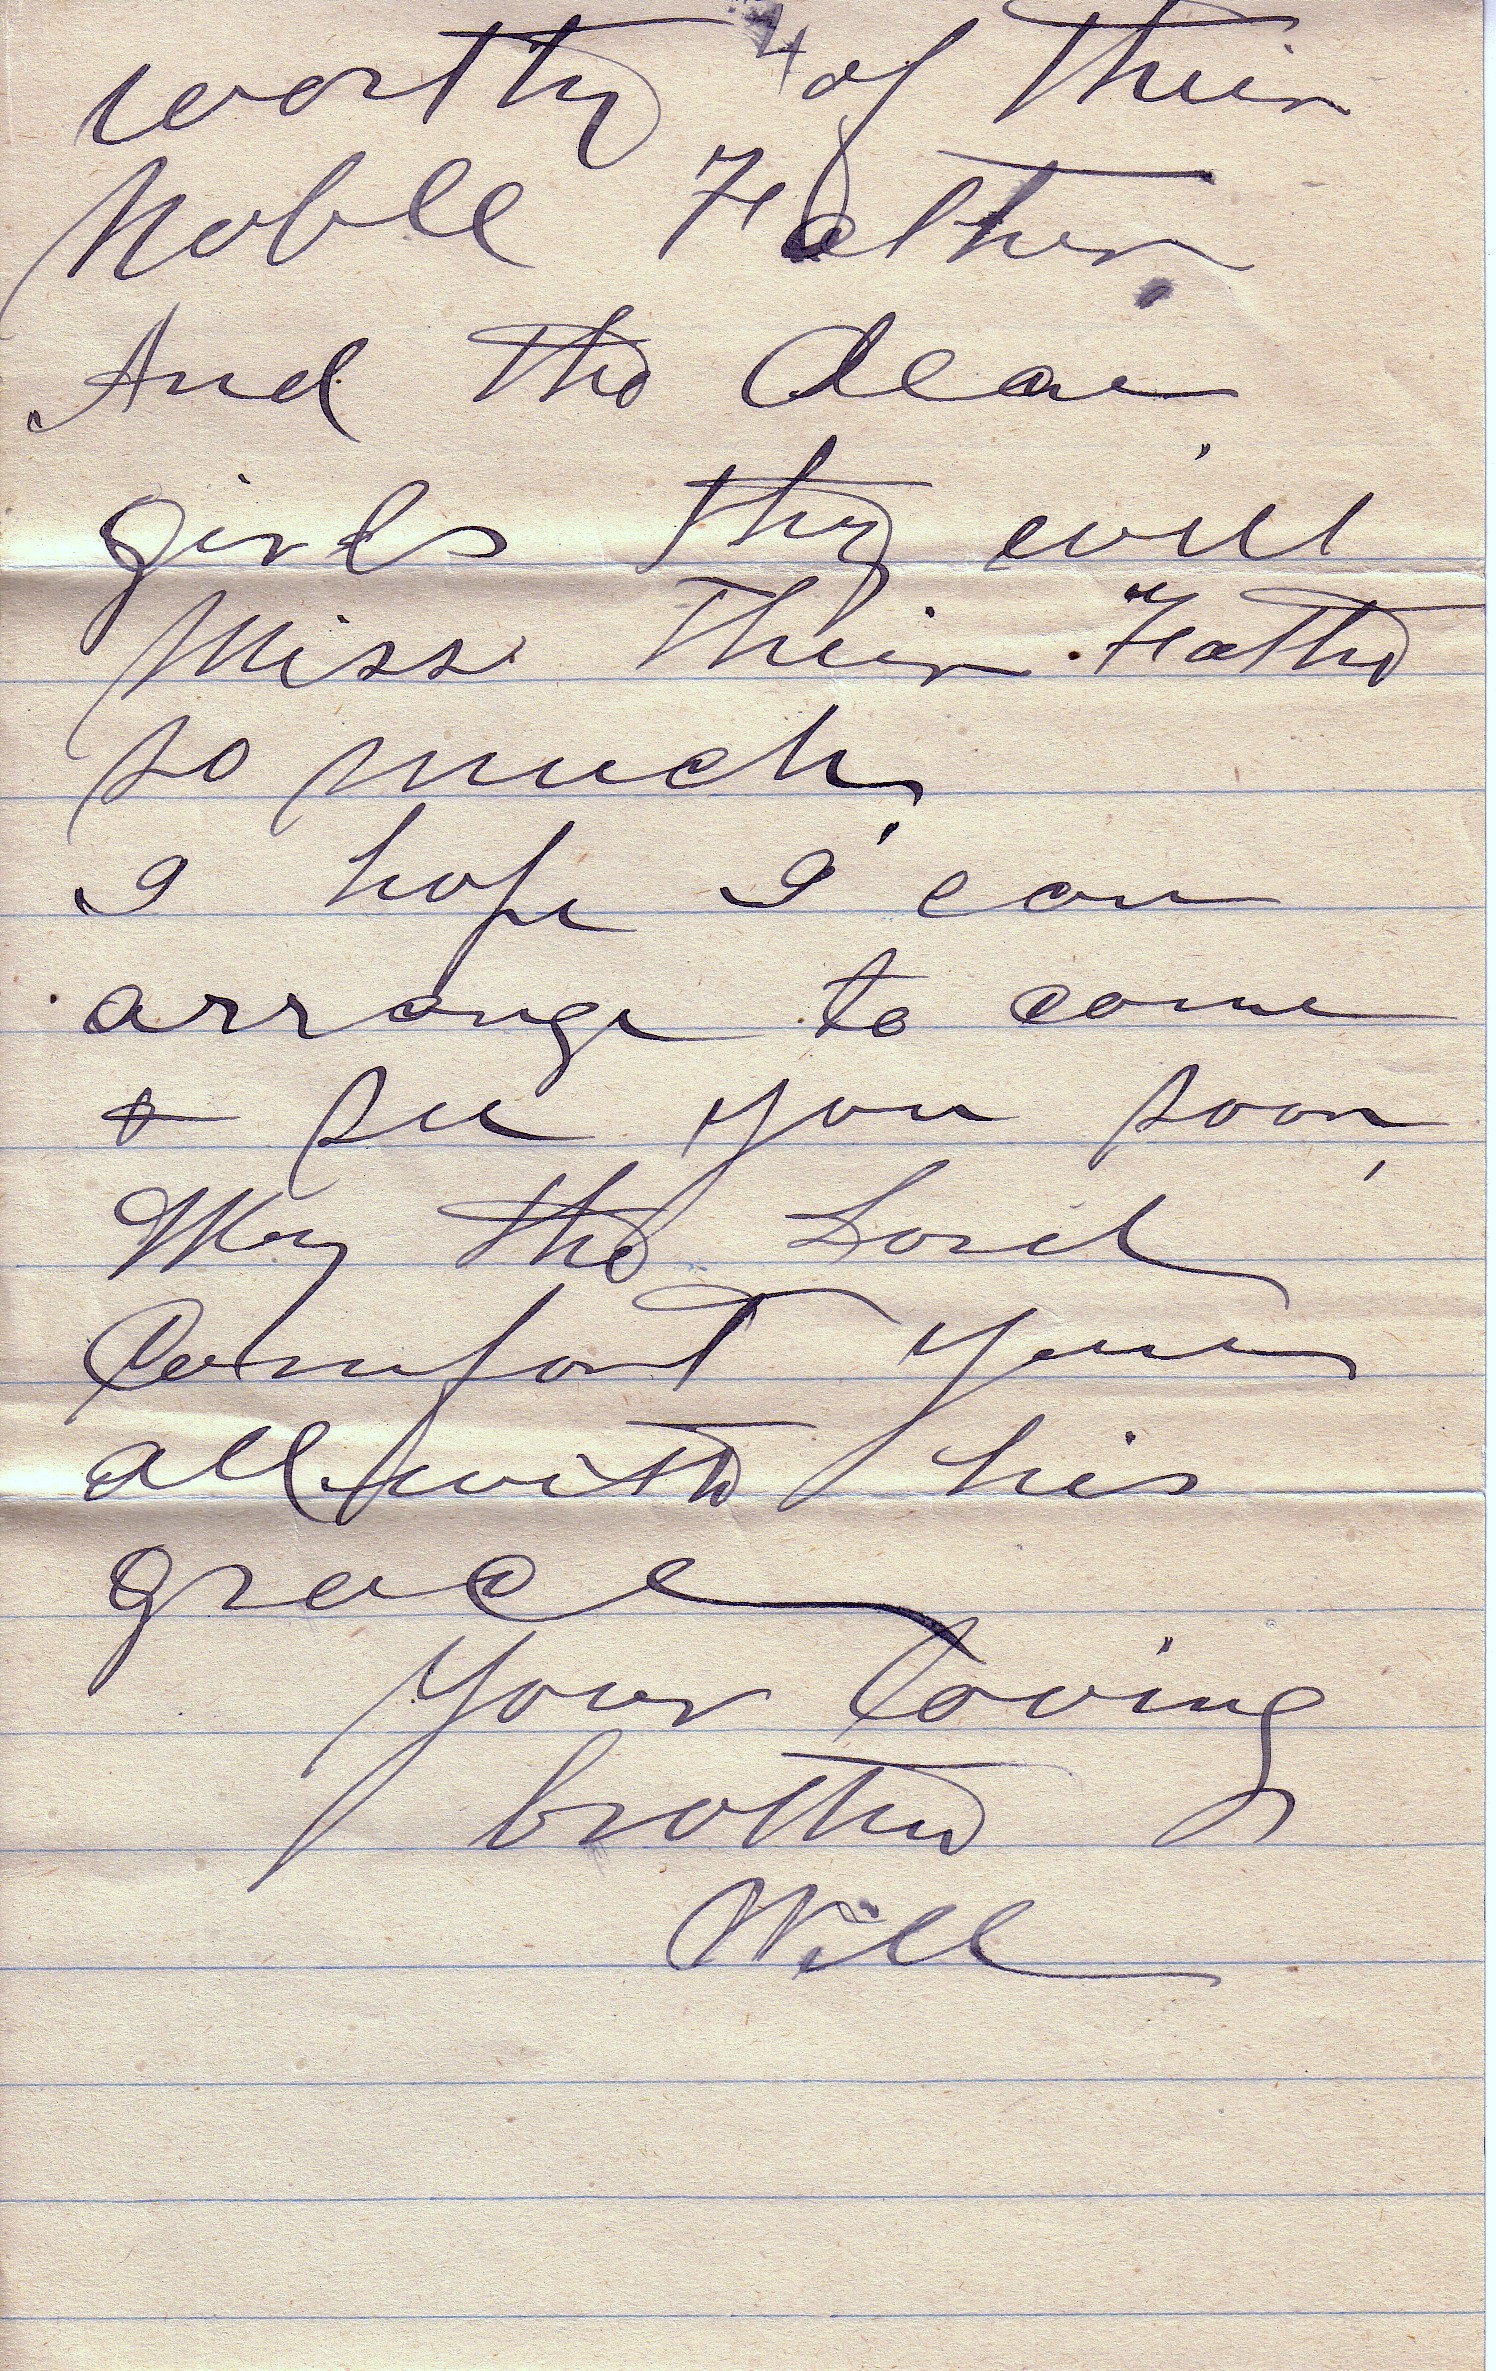 4
worthy of their
Noble Father.
And the dear
girls they will
Miss their Father
so much,
I hope I can
arrange to come
& see you soon,
May the Lord
Comfort you
all with his
grace
Your loving
brother
Will